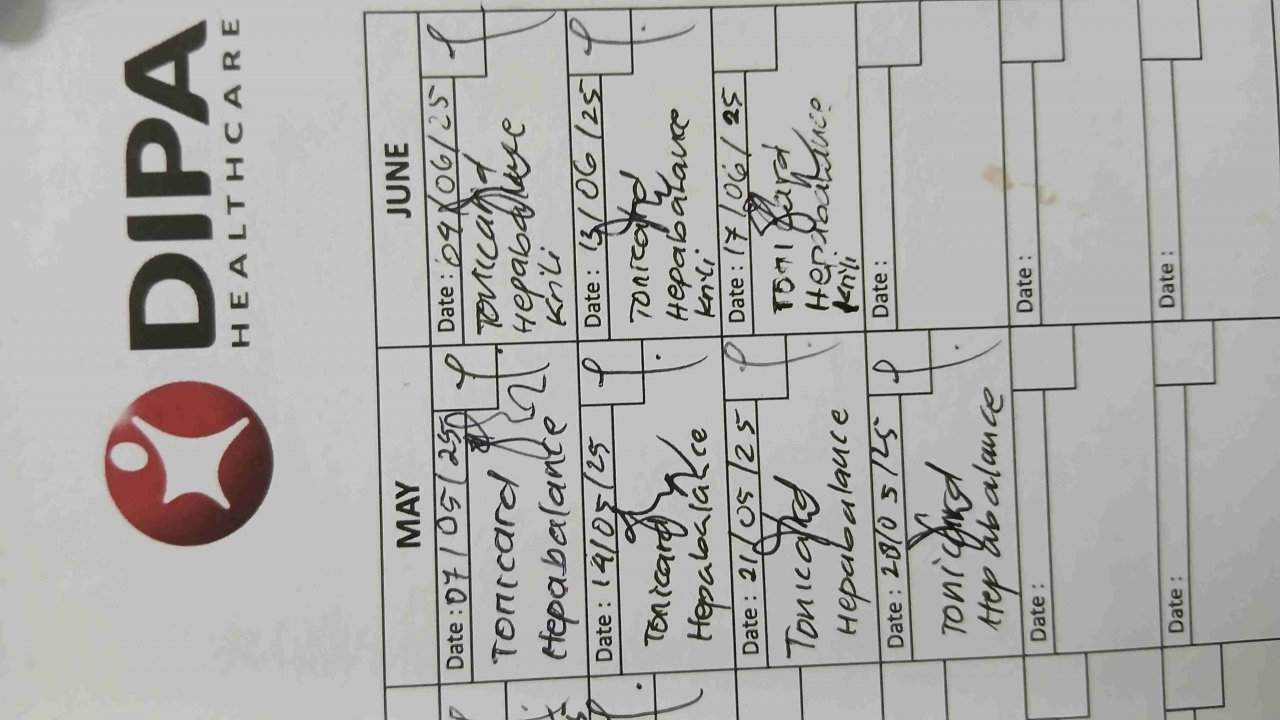 DIPA
HEALTHCARE
MAY
Date : 07/05/25
Tonicard
Hepabalance
Date : 14/05/25
Tonicard
Hepabalance
Date : 21/05/25
Tonicard
Hepabalance
Date : 28/05/25
Tonicard
Hepabalance
Date :
Date :
JUNE
Date : 04/06/25
Tonicard
Hepabalance
Knili
Date : 13/06/25
Tonicard
Hepabalance
Knili
Date : 17/06/25
Tonicard
Hepabalance
Knili
Date :
Date :
Date :